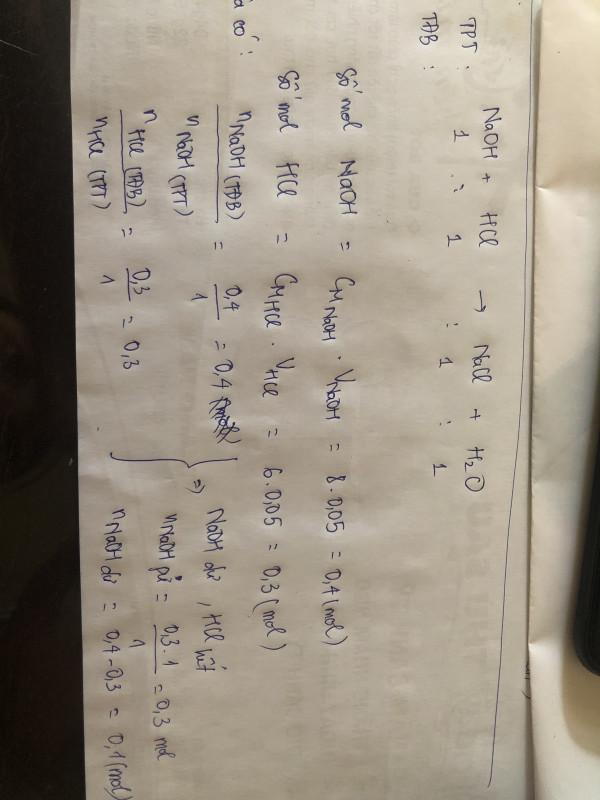 TPT : NaOH + HCl → NaCl + H₂O
TĐB : 1 : 1 : 1 : 1
Số mol NaOH = CM NaOH . VNaOH = 8.0,05 = 0,4 (mol)
Số mol HCl = CM HCl . VHCl = 6.0,05 = 0,3 (mol)
có :
nNaOH (TĐB) / nNaOH (TPT) = 0,4 / 1 = 0,4
nHCl (TĐB) / nHCl (TPT) = 0,3 / 1 = 0,3
⇒ NaOH dư, HCl hết
nNaOH pứ = 0,3 . 1 / 1 = 0,3 mol
nNaOH dư = 0,4 - 0,3 = 0,1 (mol)